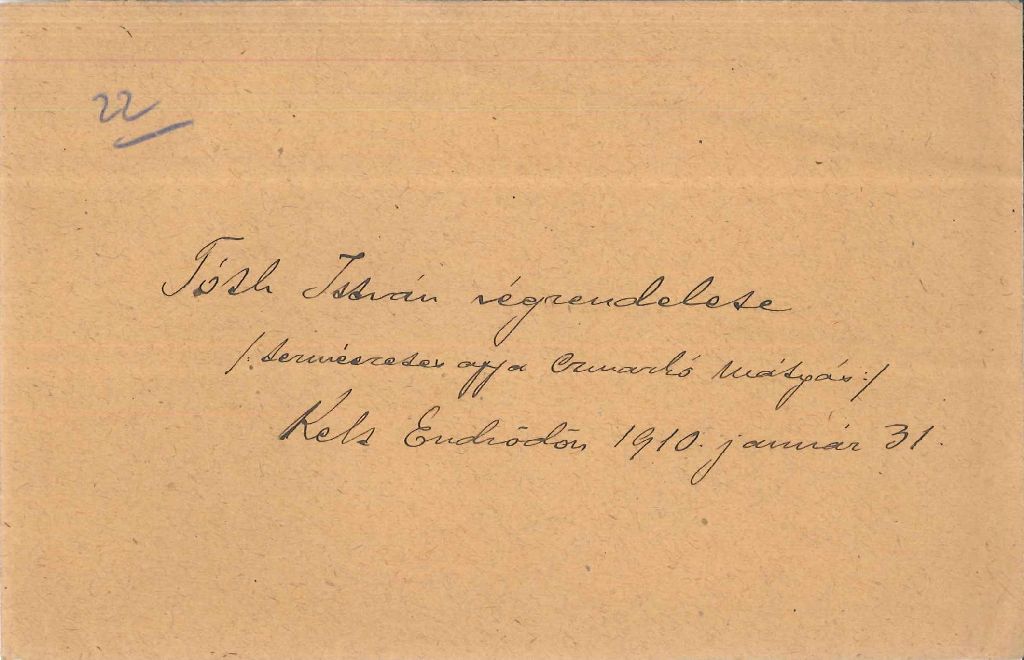 22
Tóth István végrendelete
/: természetes apja Czmarkó Mátyás :/
Kelt Endrődön 1910. január 31.